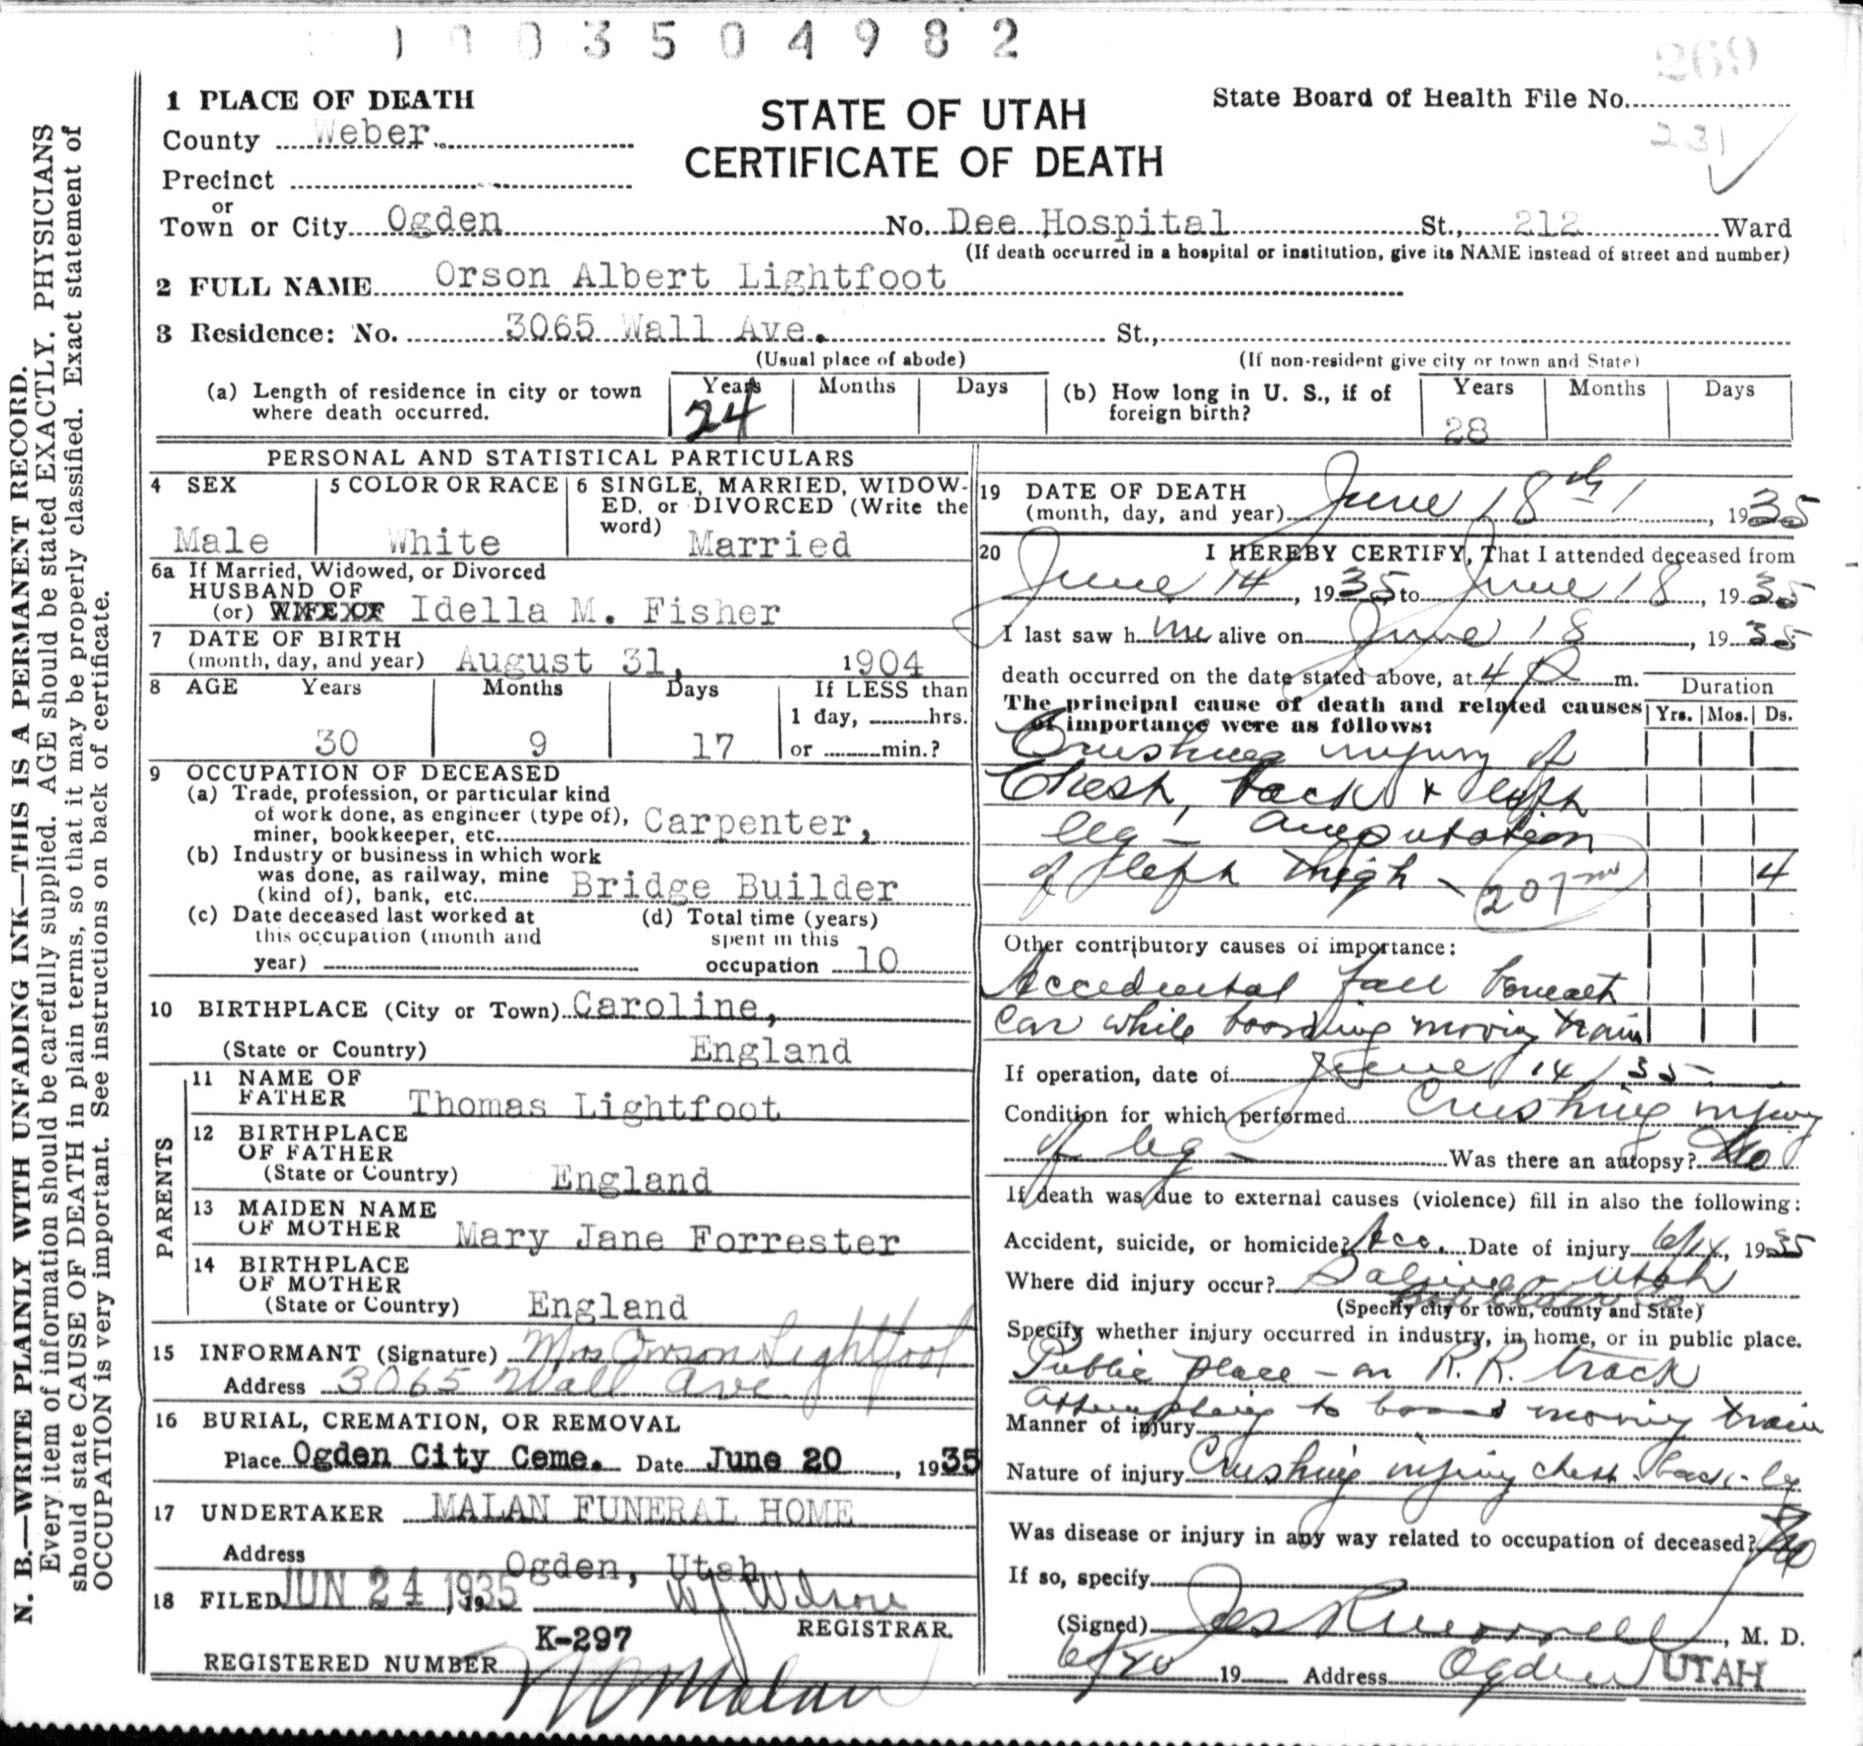 1003504982
269
1 PLACE OF DEATH
STATE OF UTAH
CERTIFICATE OF DEATH
State Board of Health File No.
231
County Weber.
Precinct
or
Town or City Ogden No. Dee Hospital St., 212 Ward
(If death occurred in a hospital or institution, give its NAME instead of street and number)
2 FULL NAME Orson Albert Lightfoot
3 Residence: No. 3065 Wall Ave. St.,
(Usual place of abode) (If non-resident give city or town and State)
(a) Length of residence in city or town where death occurred. Years 24 Months Days
(b) How long in U. S., if of foreign birth? Years 28 Months Days
PERSONAL AND STATISTICAL PARTICULARS
4 SEX
Male
5 COLOR OR RACE
White
6 SINGLE, MARRIED, WIDOWED, or DIVORCED (Write the word)
Married
6a If Married, Widowed, or Divorced
HUSBAND OF
(or) WIFE OF Idella M. Fisher
7 DATE OF BIRTH
(month, day, and year) August 31, 1904
8 AGE Years Months Days If LESS than
1 day, hrs.
30 9 17 or min.?
9 OCCUPATION OF DECEASED
(a) Trade, profession, or particular kind
of work done, as engineer (type of),
miner, bookkeeper, etc. Carpenter,
(b) Industry or business in which work
was done, as railway, mine
(kind of), bank, etc. Bridge Builder
(c) Date deceased last worked at
this occupation (month and
year)
(d) Total time (years)
spent in this
occupation 10
10 BIRTHPLACE (City or Town) Caroline,
(State or Country) England
PARENTS
11 NAME OF
FATHER Thomas Lightfoot
12 BIRTHPLACE
OF FATHER
(State or Country) England
13 MAIDEN NAME
OF MOTHER Mary Jane Forrester
14 BIRTHPLACE
OF MOTHER
(State or Country) England
15 INFORMANT (Signature) Mrs Orson Lightfoot
Address 3065 Wall Ave
16 BURIAL, CREMATION, OR REMOVAL
Place Ogden City Ceme. Date June 20, 1935
17 UNDERTAKER MALAN FUNERAL HOME
Address Ogden, Utah
18 FILED JUN 24 1935, 19 W J Wilson
REGISTRAR.
K-297
REGISTERED NUMBER
Malan
19 DATE OF DEATH
(month, day, and year) June 18th, 1935
20 I HEREBY CERTIFY, That I attended deceased from
June 14, 1935 to June 18, 1935
I last saw him alive on June 18, 1935
death occurred on the date stated above, at 4 P m.
The principal cause of death and related causes
of importance were as follows:
Duration
Yrs. Mos. Ds.
Crushing injury of
Chest, back & left
leg - amputation
of left thigh - 4
207
Other contributory causes of importance:
Accidental fall beneath
car while boarding moving train
If operation, date of June 14/35
Condition for which performed Crushing injury
of leg - Was there an autopsy? No
If death was due to external causes (violence) fill in also the following:
Accident, suicide, or homicide? Acc. Date of injury 6/14, 1935
Where did injury occur? Utah
(Specify city or town, county and State)
Specify whether injury occurred in industry, in home, or in public place.
Public place - on R.R. track
Attempting to board moving train
Manner of injury
Nature of injury Crushing injury chest - back - leg
Was disease or injury in any way related to occupation of deceased? No
If so, specify
(Signed) , M. D.
6/20 19 Address Ogden UTAH
N. B.—WRITE PLAINLY WITH UNFADING INK—THIS IS A PERMANENT RECORD.
Every item of information should be carefully supplied. AGE should be stated EXACTLY. PHYSICIANS
should state CAUSE OF DEATH in plain terms, so that it may be properly classified. Exact statement of
OCCUPATION is very important. See instructions on back of certificate.